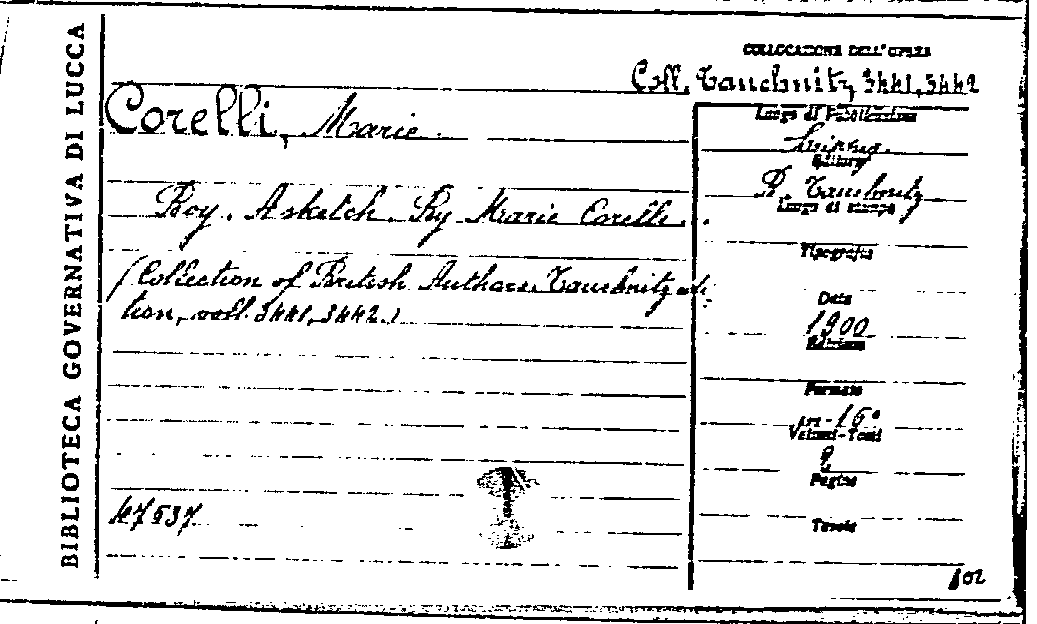 BIBLIOTECA GOVERNATIVA DI LUCCA
COLLOCAZIONE DELL'OPERA
Coll. Tauchnitz 3441, 3442
Corelli, Marie
Boy. A sketch. By Marie Corelli..
(Collection of British Authors. Tauchnitz edi-
tion, voll. 3441, 3442.)
47537
Luogo di Pubblicazione
Lipsia.
Editore
B. Tauchnitz
Luogo di stampa
Tipografia
Data
1900
Edizione
Formato
in-16°
Volumi-Tomi
2
Pagine
Tavole
102